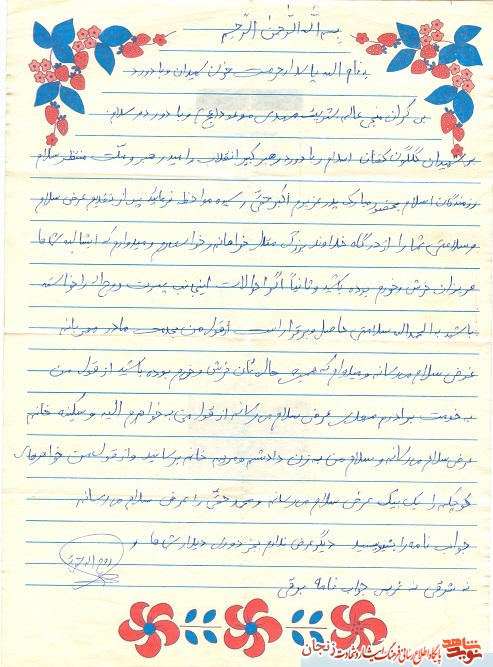 بسم الله الرحمن الرحیم
بنام الله پاسدار حرمت خون شهیدان و با درود
بی کران منجی عالم بشریت مهدی موعود (عج) و با درود و سلام
بر شهیدان گلگون کفنان اسلام و با درود رهبر کبیر انقلاب و امید رهبر و ملت منتظر سلام
رزمندگان اسلام بحضور مبارک پدر عزیزم اکبر حقی رسیده ملاحظه فرمائید پس از تقدیم عرض سلام
و سلامتی شما را از درگاه خداوند بزرگ متعال خواهانم و خواستارم و امیدوارم که انشاالله شما
عزیزان خوش و خرم بوده باشید و ثانیاً اگر احوالات اینجانب پسرت را خواسته
باشید الحمدالله سلامتی حاصل و برقرار است از قول من بخدمت مادر مهربانم
عرض سلام می رسانم و امیدوارم که همیشه حالتان خوش و خرم بوده باشید از قول من
بخدمت برادرم عرض سلام می رسانم از قول من به خواهرم الهه و سکینه خانم
عرض سلام می رسانم و سلام من به زن داداشم خانم برسانید و از قول من خواهرهای
کوچکم را یک بیک عرض سلام می رسانم و محمد حقی را عرض سلام می رسانم
جواب نامه را بنویسید دیگر عرضی ندارم بجز دوری دیدار شما و
نه شرقی نه غربی جواب نامه برقی
نوید شاهد
پایگاه اطلاع رسانی فرهنگ ایثار و شهادت زنجان